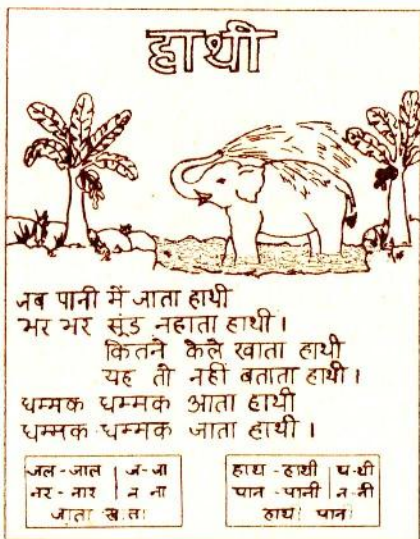 हाथी
जब पानी में जाता हाथी
भर भर सूंड नहाता हाथी ।
कितने केले खाता हाथी
यह तो नहीं बताता हाथी ।
धम्मक धम्मक आता हाथी
धम्मक धम्मक जाता हाथी ।
जल - जाल | ज - जा
नर - नार | न ना
जाता
हाथ - हाथी | थ - थी
पान - पानी | न - नी
हाथ पान